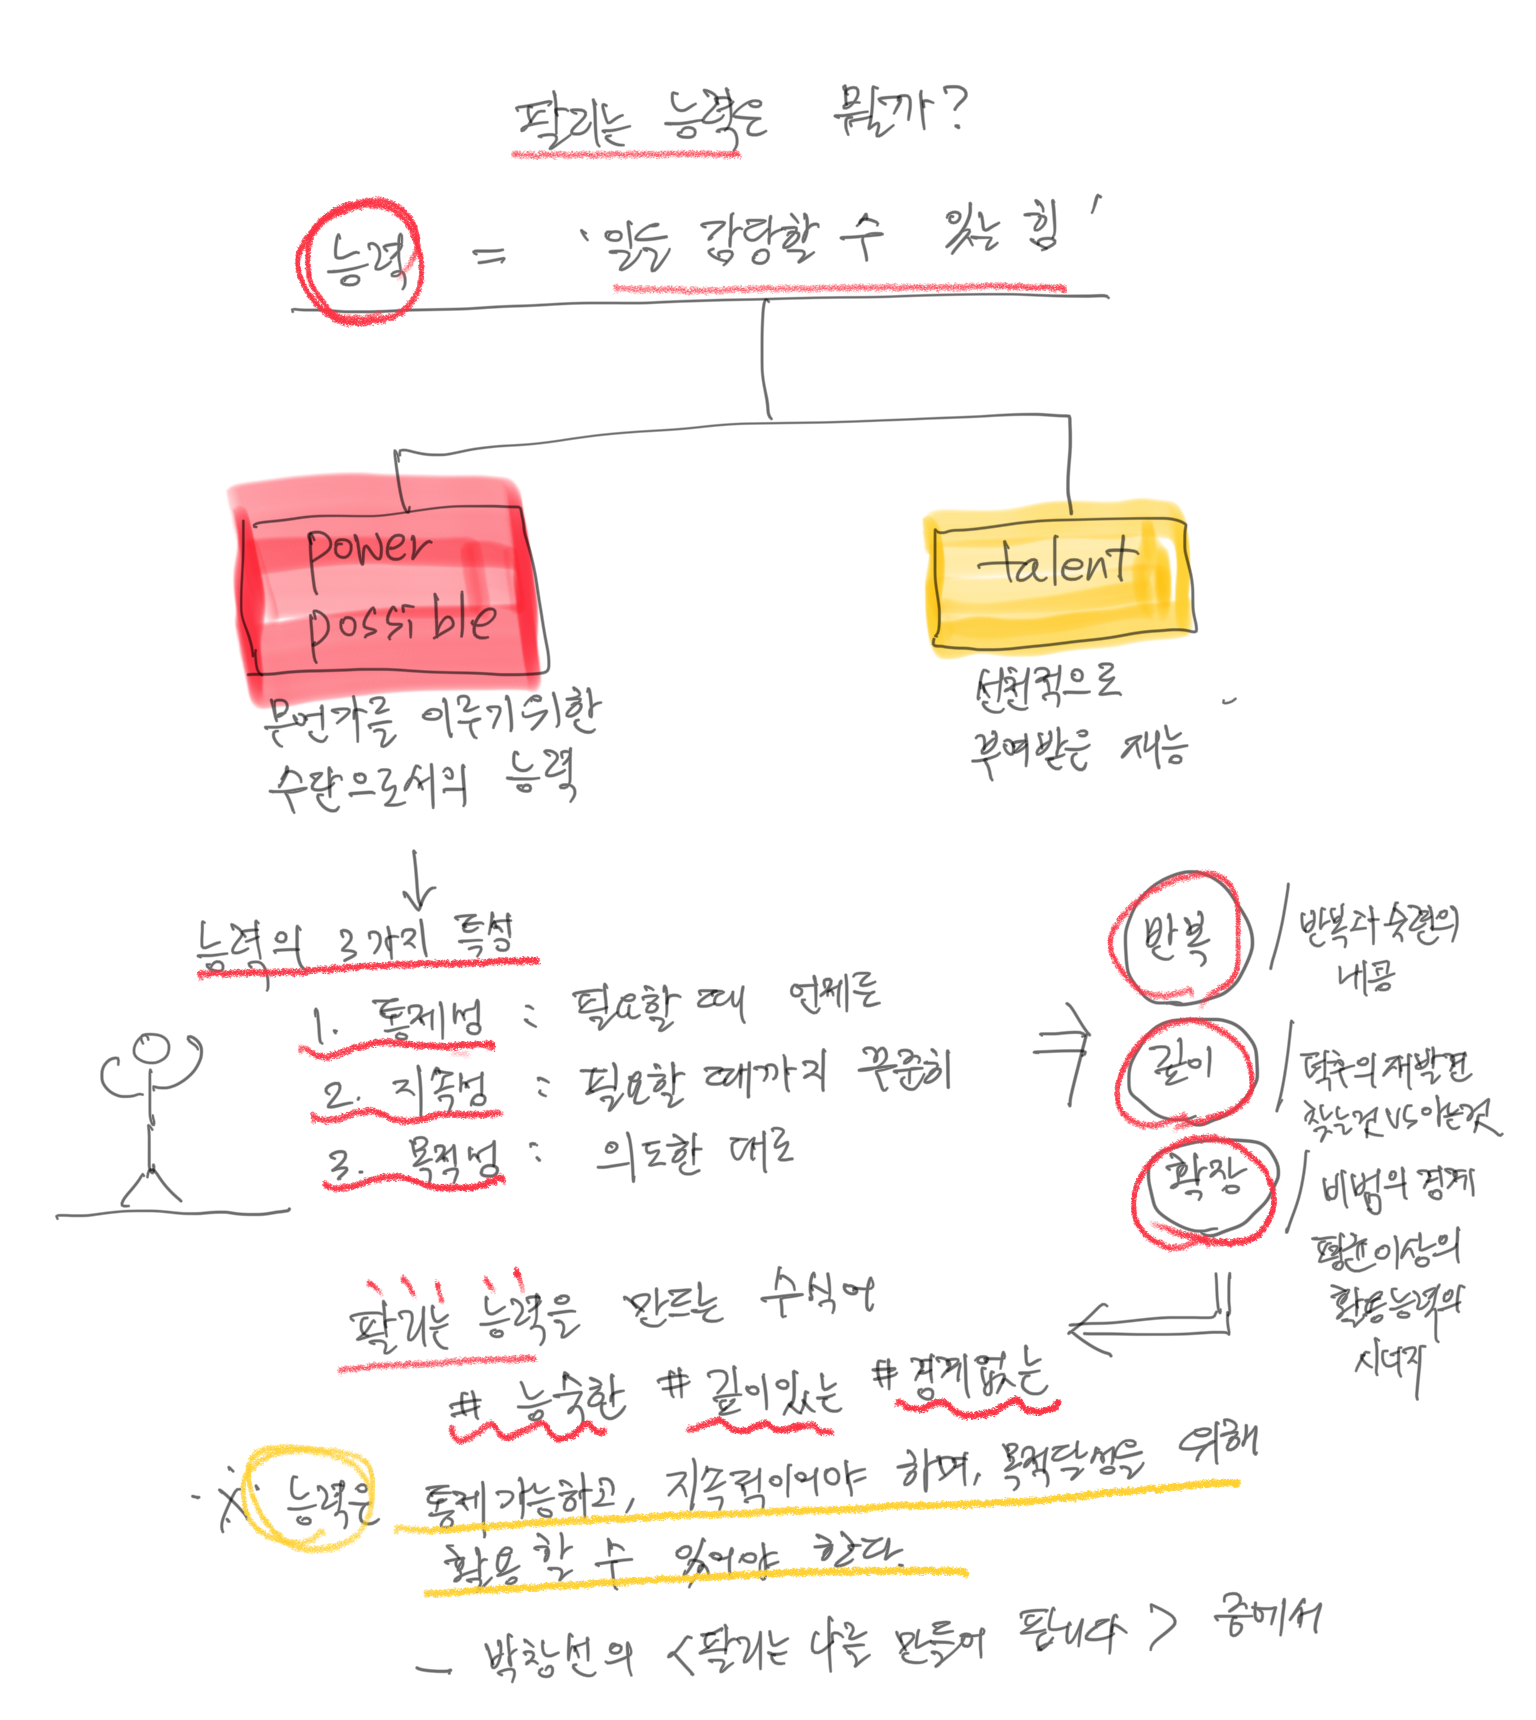 팔리는 능력은 뭘까?
능력 = '일을 감당할 수 있는 힘'
power
possible
talent
무언가를 이루기위한
수단으로서의 능력
선천적으로
부여받은 재능
능력의 3가지 특성
1. 통제성 : 필요할 때 언제든
2. 지속성 : 필요할 때까지 꾸준히
3. 목적성 : 의도한 대로
반복 / 반복과 숙련의
내공
깊이 / 덕후의 재발견
찾는것 VS 아는것
확장 / 비범의 경계
평균이상의
활용능력의
시너지
팔리는 능력을 만드는 수식어
# 능숙한 # 깊이있는 # 경계없는
※ 능력은 통제가능하고, 지속적이어야 하며, 목적달성을 위해
활용할 수 있어야 한다.
- 박창선의 <팔리는 나를 만들어 팝니다> 중에서